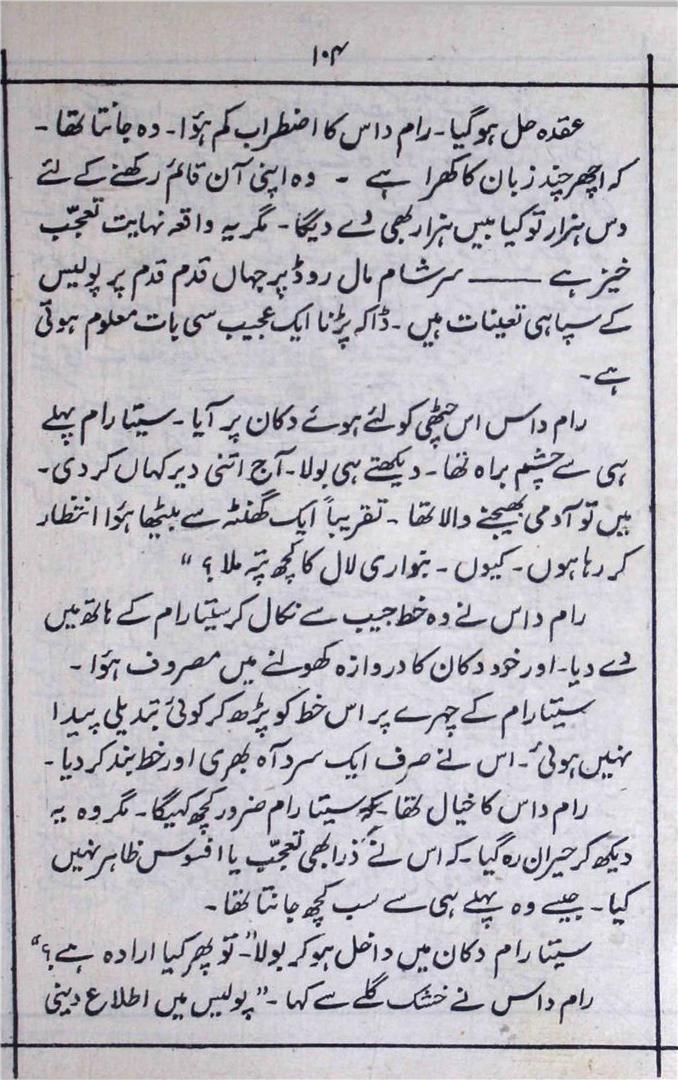 ۱۰۴
عقدہ حل ہوگیا۔ رام داس کا اضطراب کم ہؤا۔ وہ جانتا تھا۔
کہ اچھر چند زبان کا کھرا ہے ۔ وہ اپنی آن قائم رکھنے کے لئے
دس ہزار تو کیا بیس ہزار بھی دے دیگا۔ مگر یہ واقعہ نہایت تعجّب
خیز ہے ——— سرشام مال روڈ پر جہاں قدم قدم پر پولیس
کے سپاہی تعینات ہیں۔ ڈاکہ پڑنا ایک عجیب سی بات معلوم ہوتی
ہے۔
رام داس اس چٹھی کو لئے ہوئے دکان پر آیا۔ سیتا رام پہلے
ہی سے چشم براہ تھا۔ دیکھتے ہی بولا۔ آج اتنی دیر کہاں کر دی۔
میں تو آدمی بھیجنے والا تھا ۔ تقریباً ایک گھنٹہ سے بیٹھا ہؤا انتظار
کر رہا ہوں۔ کیوں۔ بنواری لال کا کچھ پتہ ملا؟"
رام داس نے وہ خط جیب سے نکال کر سیتا رام کے ہاتھ میں
دے دیا۔ اور خود دکان کا دروازہ کھولنے میں مصروف ہؤا ۔
سیتا رام کے چہرے پر اس خط کو پڑھ کر کوئی تبدیلی پیدا
نہیں ہوئی۔ اس نے صرف ایک سرد آہ بھری اور خط بند کر دیا۔
رام داس کا خیال تھا کہ سیتا رام ضرور کچھ کہیگا۔ مگر وہ یہ
دیکھ کر حیران رہ گیا۔ کہ اس نے ذرا بھی تعجّب یا افسوس ظاہر نہیں
کیا۔ جیسے وہ پہلے ہی سے سب کچھ جانتا تھا۔
سیتا رام دکان میں داخل ہو کر بولا۔ "تو پھر کیا ارادہ ہے؟"
رام داس نے خشک گلے سے کہا۔ "پولیس میں اطلاع دینی